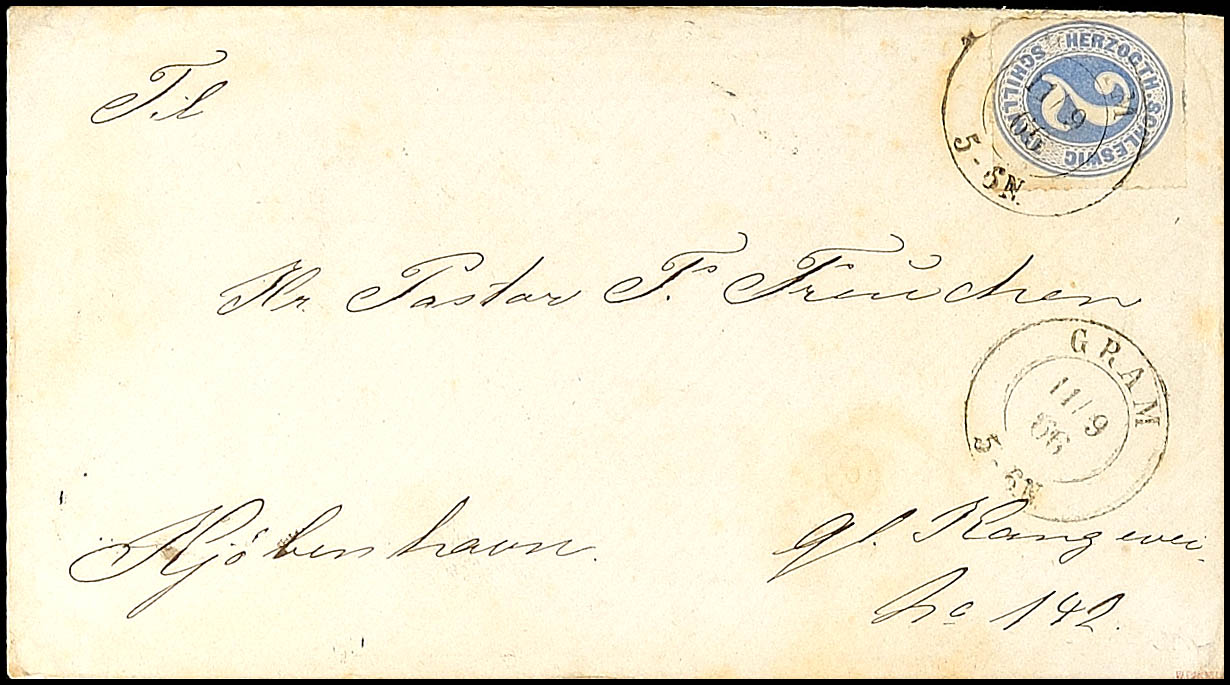 HERZOGTH. SCHLESWIG
2
SCHILL
11/9
66
5-6N.
Til
Hr. Pastor F. Freuchen
GRAM
11/9
66
5-6N
Kjöbenhavn.
gl. Kongevei.
No 142.